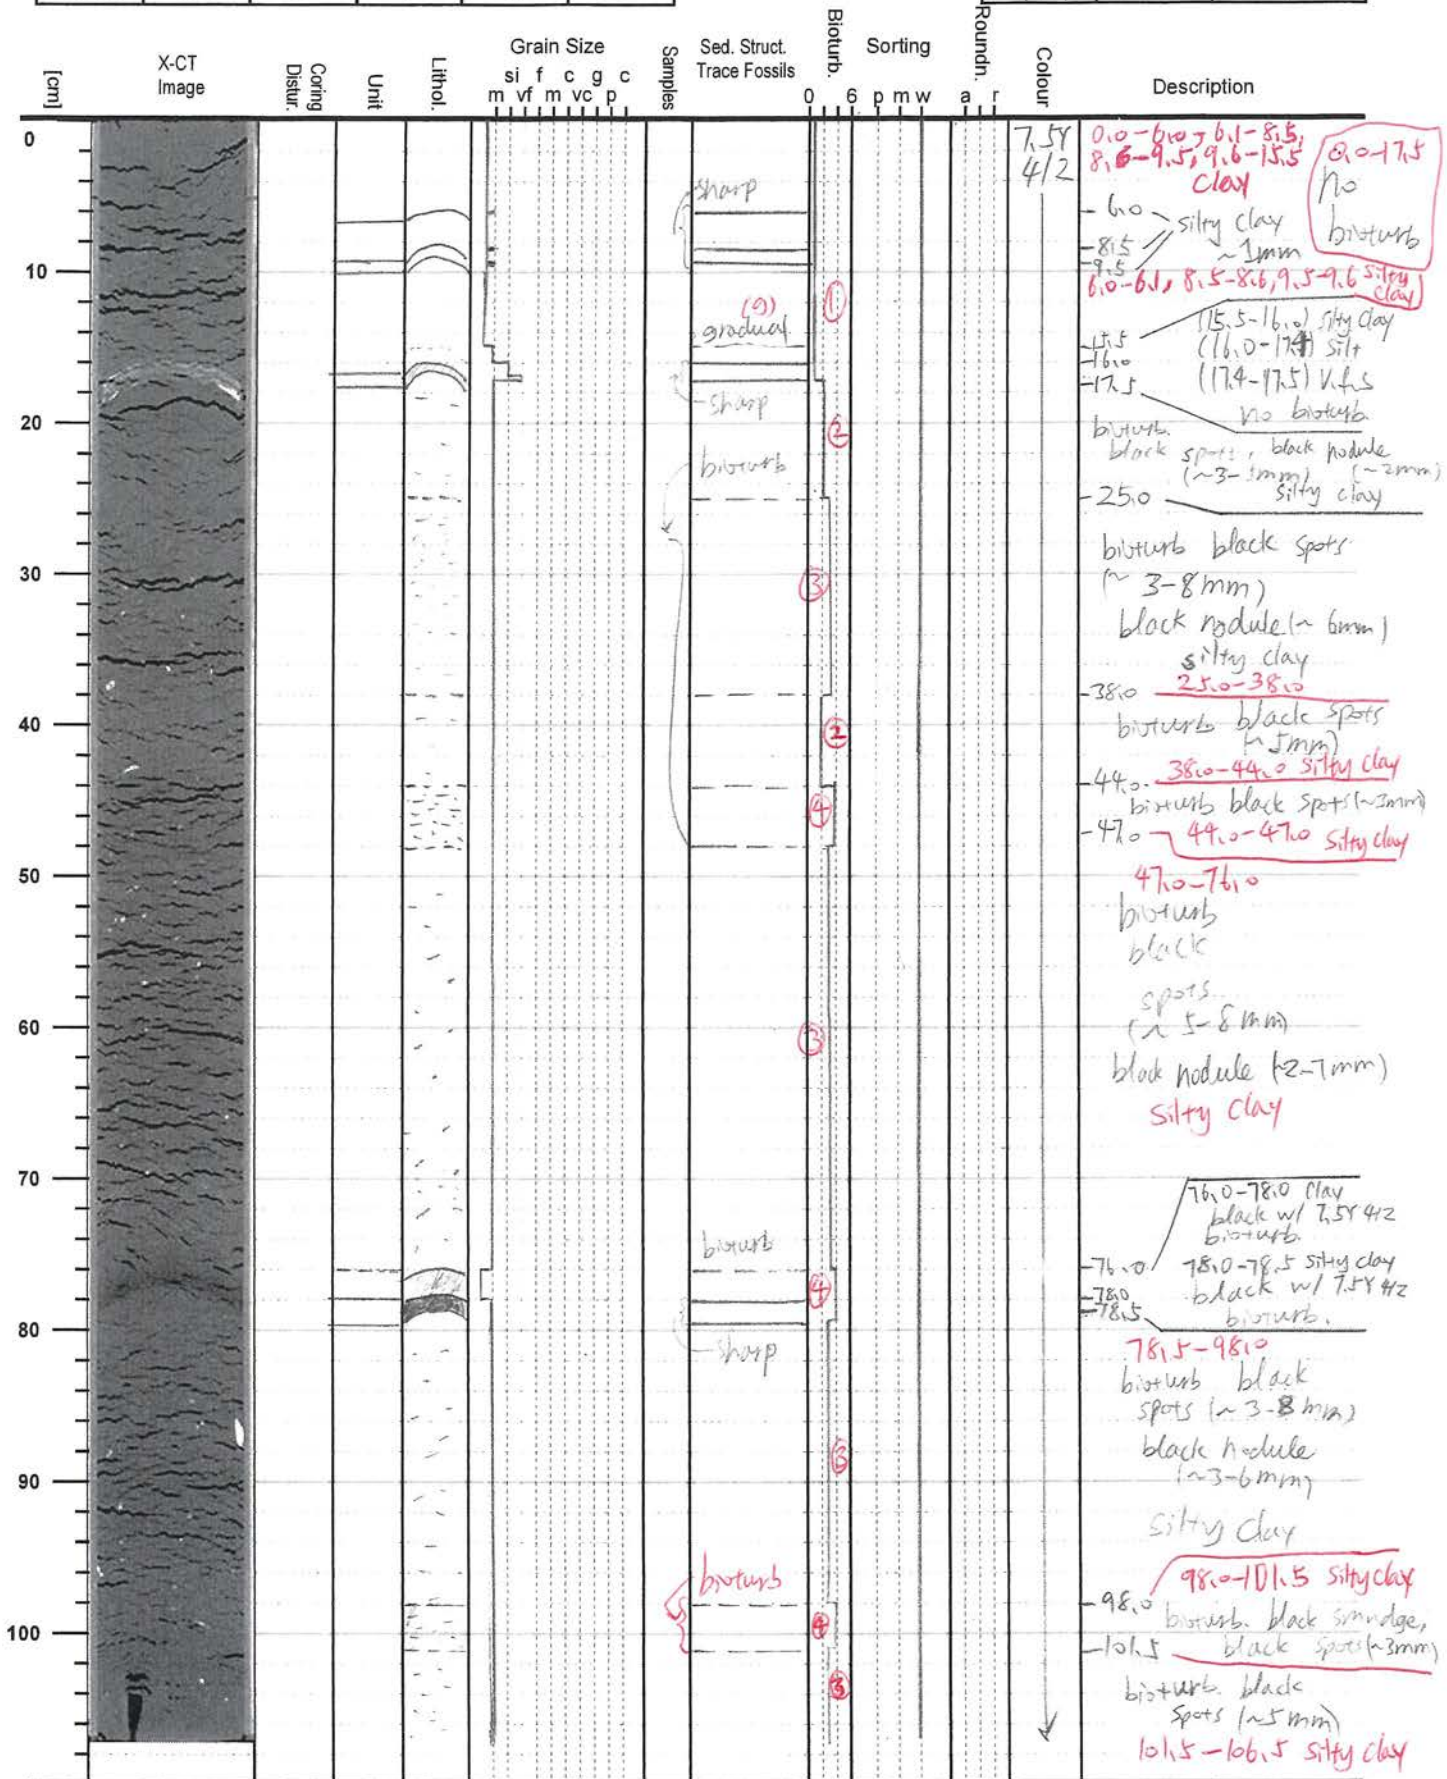 [cm]
X-CT
Image
Coring
Distur.
Unit
Lithol.
Grain Size
si f c g c
m vf m vc p
Samples
Sed. Struct.
Trace Fossils
Bioturb.
0 6
Sorting
p m w
Roundn.
a r
Colour
Description
0
10
20
30
40
50
60
70
80
90
100
sharp
(g)
gradual
sharp
bioturb
bioturb
sharp
bioturb
①
②
③
②
④
③
④
③
④
③
7.5Y
4/2
0.0-6.0, 6.1-8.5,
8.6-9.5, 9.6-15.5
clay
0.0-17.5
no
bioturb
6.0
8.5
9.5
silty clay
~1mm
6.0-6.1, 8.5-8.6, 9.5-9.6 silty
clay
15.5
16.0
17.5
(15.5-16.0) silty clay
(16.0-17.4) silt
(17.4-17.5) v.f.s
no bioturb.
bioturb.
black spots, black nodule
(~2mm)
silty clay
25.0
bioturb black spots
(~ 3-8mm)
black nodule (~ 6mm)
silty clay
25.0-38.0
38.0
bioturb black spots
(~5mm)
38.0-44.0 silty clay
44.0
bioturb black spots (~3mm)
47.0
44.0-47.0 silty clay
47.0-76.0
bioturb
black
spots
(~ 5-8mm)
black nodule (~2-7mm)
silty clay
76.0-78.0 clay
black w/ 7.5Y 4/2
bioturb.
76.0
78.0
78.5
78.0-78.5 silty clay
black w/ 7.5Y 4/2
bioturb.
78.5-98.0
bioturb black
spots (~ 3-8mm)
black nodule
(~3-6mm)
silty clay
98.0-101.5 silty clay
98.0
bioturb. black smudge,
black spots (~3mm)
101.5
bioturb. black
spots (~5mm)
101.5-106.5 silty clay